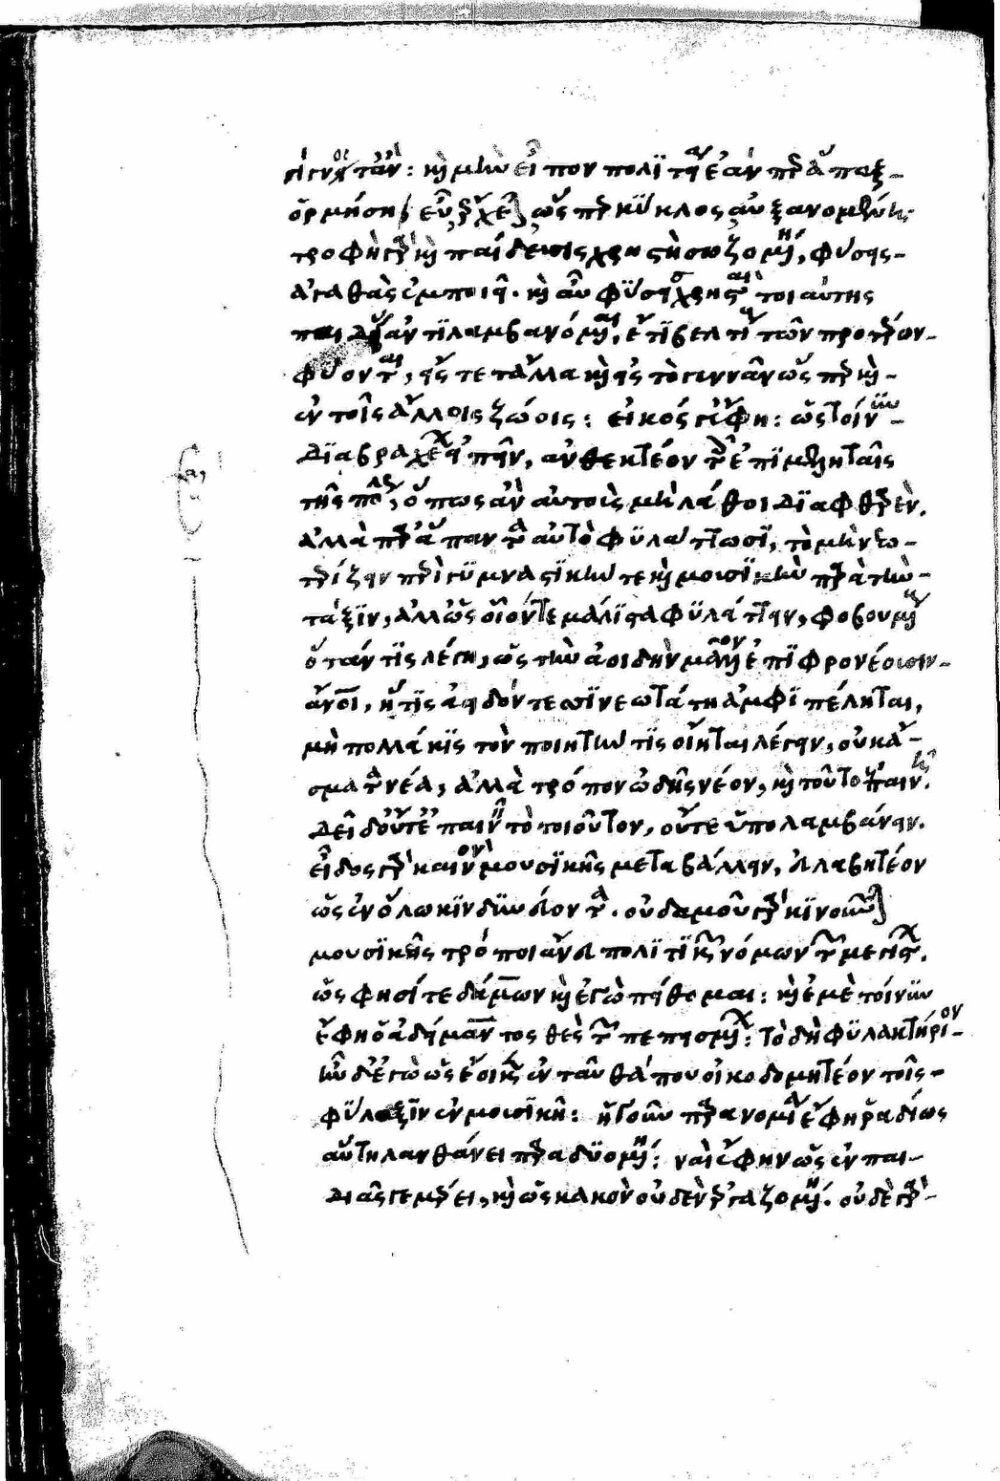 γίγνοιτ' ἄν: καὶ μὴν εἶπον πολιτεία ἐάνπερ ἅπαξ
ὁρμήσῃ εὖ, ἔρχεται ὥσπερ κύκλος αὐξανομένη·
τροφὴ γὰρ καὶ παίδευσις χρηστὴ σωζομένη, φύσεις
ἀγαθὰς ἐμποιεῖ. καὶ αὖ φύσεις χρησταὶ τοιαύτης
παιδείας ἀντιλαμβανόμεναι, ἔτι βελτίους τῶν προτέρων
φύονται, εἴς τε τἆλλα καὶ εἰς τὸ γεννᾶν ὥσπερ καὶ
ἐν τοῖς ἄλλοις ζώοις: εἰκός γ' ἔφη: ὡς τοίνυν
διὰ βραχέων εἰπεῖν, ἀνθεκτέον τοῖς ἐπιμεληταῖς
τῆς πόλεως, ὅπως ἂν αὐτοὺς μὴ λάθοι διαφθαρὲν.
ἀλλὰ παρὰ πάντα αὐτὸ φυλάττωσι, τὸ μὴ νεω
τερίζειν περὶ γυμναστικήν τε καὶ μουσικὴν παρὰ τὴν
τάξιν, ἀλλ' ὡς οἷόν τε μάλιστα φυλάττειν, φοβουμένους
ὅταν τὶς λέγῃ, ὡς τὴν ἀοιδὴν μᾶλλον ἐπιφρονέουσιν
ἄνθρωποι, ἥτις ἀειδόντεσσι νεωτάτη ἀμφιπέληται,
μὴ πολλάκις τὸν ποιητήν τις οἴηται λέγειν, οὐκ ᾄ
σματα νέα, ἀλλὰ τρόπον ᾠδῆς νέον, καὶ τοῦτο ἐπαινῇ.
δεῖ δ' οὔτ' ἐπαινεῖν τὸ τοιοῦτον, οὔτε ὑπολαμβάνειν.
εἶδος γὰρ καινὸν μουσικῆς μεταβάλλειν, εὐλαβητέον
ὡς ἐν ὅλῳ κινδυνεύοντα. οὐδαμοῦ γὰρ κινοῦνται
μουσικῆς τρόποι ἄνευ πολιτικῶν νόμων τῶν μεγίστων.
ὥς φησί τε δάμων καὶ ἐγὼ πείθομαι: καὶ ἐμὲ τοίνυν
ἔφη ὁ ἀδείμαντος θὲς τῶν πεπεισμένων: τὸ δὴ φυλακτήριον
ἦν δ' ἐγὼ ὡς ἔοικεν ἐνταῦθά που οἰκοδομητέον τοῖς
φύλαξιν ἐν μουσικῇ: ἡ γοῦν παρανομία ἔφη ῥαδίως
αὕτη λανθάνει παραδυομένη: ναὶ ἔφην ὡς ἐν παι
διᾶς γε μέρει, καὶ ὡς κακὸν οὐδὲν ἐργαζομένη. οὐδὲ γὰρ